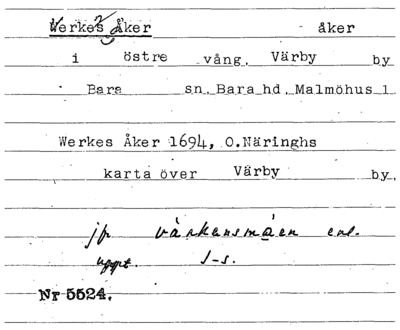 Werkes Åker åker
i östre vång, Värby by
Bara sn. Bara hd. Malmöhus l.
Werkes Åker 1694, O.Näringhs
karta över Värby by.
jfr vàrkensmáen enl.
uppt. S-s.
Nr 5524.